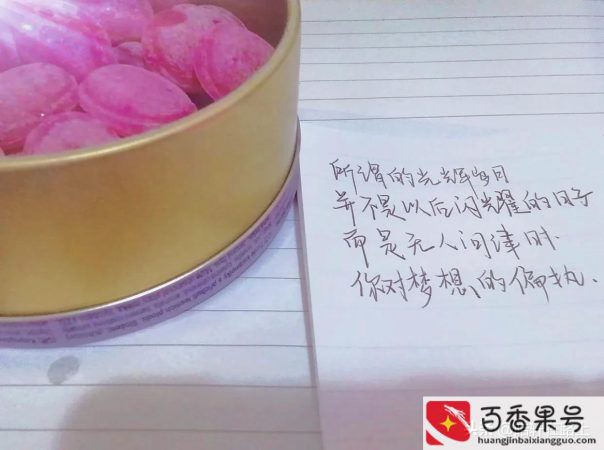 所谓的光辉岁月
并不是以后闪耀的日子
而是无人问津时
你对梦想的偏执.
百香果号
huangjinbaixiangguo.com